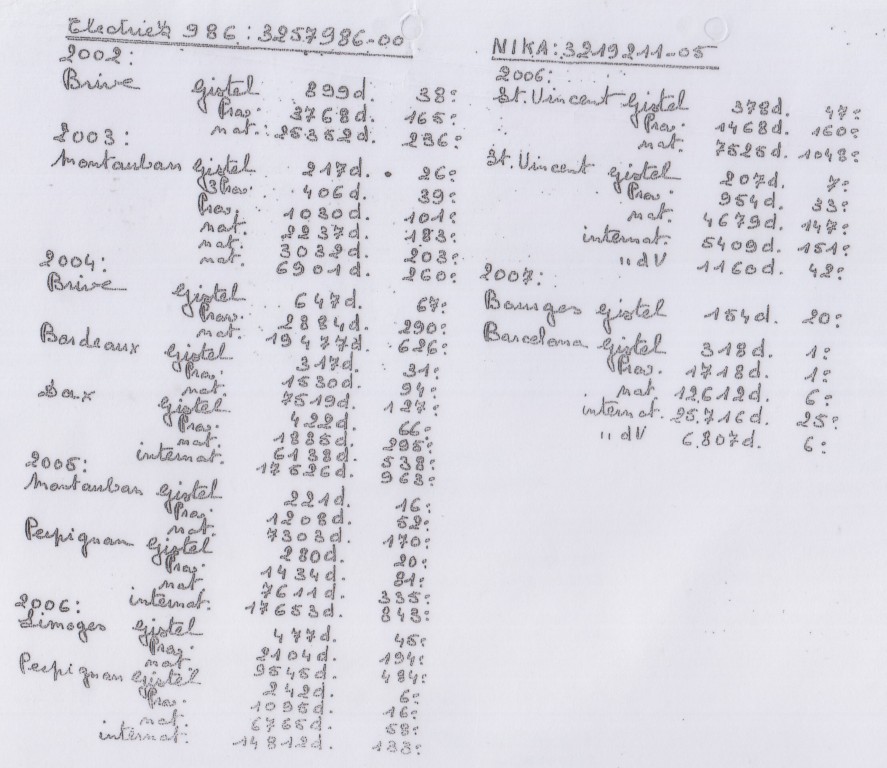 Electriek 986: 3257986-00
2002:
Brive Gistel 899d. 38e
Prov. 3768d. 165e
nat. 25352d. 236e
2003:
Montauban Gistel 217d. 26e
3Prov. 406d. 39e
Prov. 1030d. 101e
nat. 2237d. 183e
nat. 3032d. 203e
nat. 6901d. 260e
2004:
Brive Gistel 647d. 67e
Prov. 2884d. 290e
nat. 19477d. 626e
Bordeaux Gistel 317d. 31e
Prov. 1530d. 94e
nat. 7519d. 127e
Dax Gistel 422d. 66e
Prov. 1885d. 295e
nat. 6138d. 538e
internat. 17526d. 963e
2005:
Montauban Gistel 221d. 16e
Prov. 1208d. 52e
nat. 7303d. 170e
Perpignan Gistel 280d. 20e
Prov. 1434d. 81e
nat 7611d. 335e
internat. 17653d. 843e
2006:
Limoges Gistel 477d. 45e
Prov. 2104d. 194e
nat. 9545d. 484e
Perpignan Gistel 242d. 6e
Prov. 1095d. 16e
nat. 6765d. 58e
internat. 14812d. 133e
NIKA: 3219211-05
2006:
St. Vincent Gistel 378d. 47e
Prov. 1468d. 160e
nat. 7525d. 1048e
St. Vincent Gistel 207d. 7e
Prov. 954d. 33e
nat. 4679d. 147e
internat. 5409d. 151e
" dV 1160d. 42e
2007:
Bourges Gistel 154d. 20e
Barcelona Gistel 318d. 1e
Prov. 1718d. 1e
nat. 12.612d. 6e
internat. 25.716d. 25e
" dV 6.807d. 6e